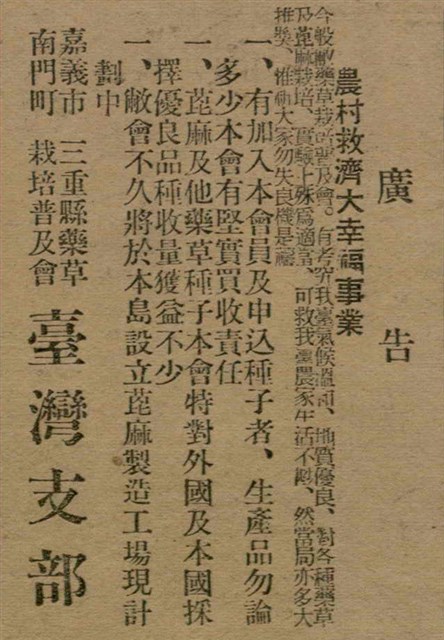 廣告
農村救濟大幸福事業
今般敝藥草栽培普及會。有考究我臺氣候溫和、地質優良、對各種藥草
及蓖麻栽培、實驗上殊爲適當、可救我臺農家生活不尠、然當局亦多大
推奬、惟勸大家勿失良機是禱
一、有加入本會員及申込種子者、生產品勿論
多少本會有堅實買收責任
一、蓖麻及他藥草種子本會特對外國及本國採
擇優良品種收量獲益不少
一、敝會不久將於本島設立蓖麻製造工場現計
劃中
嘉義市 三重縣藥草
南門町 栽培普及會
臺灣支部